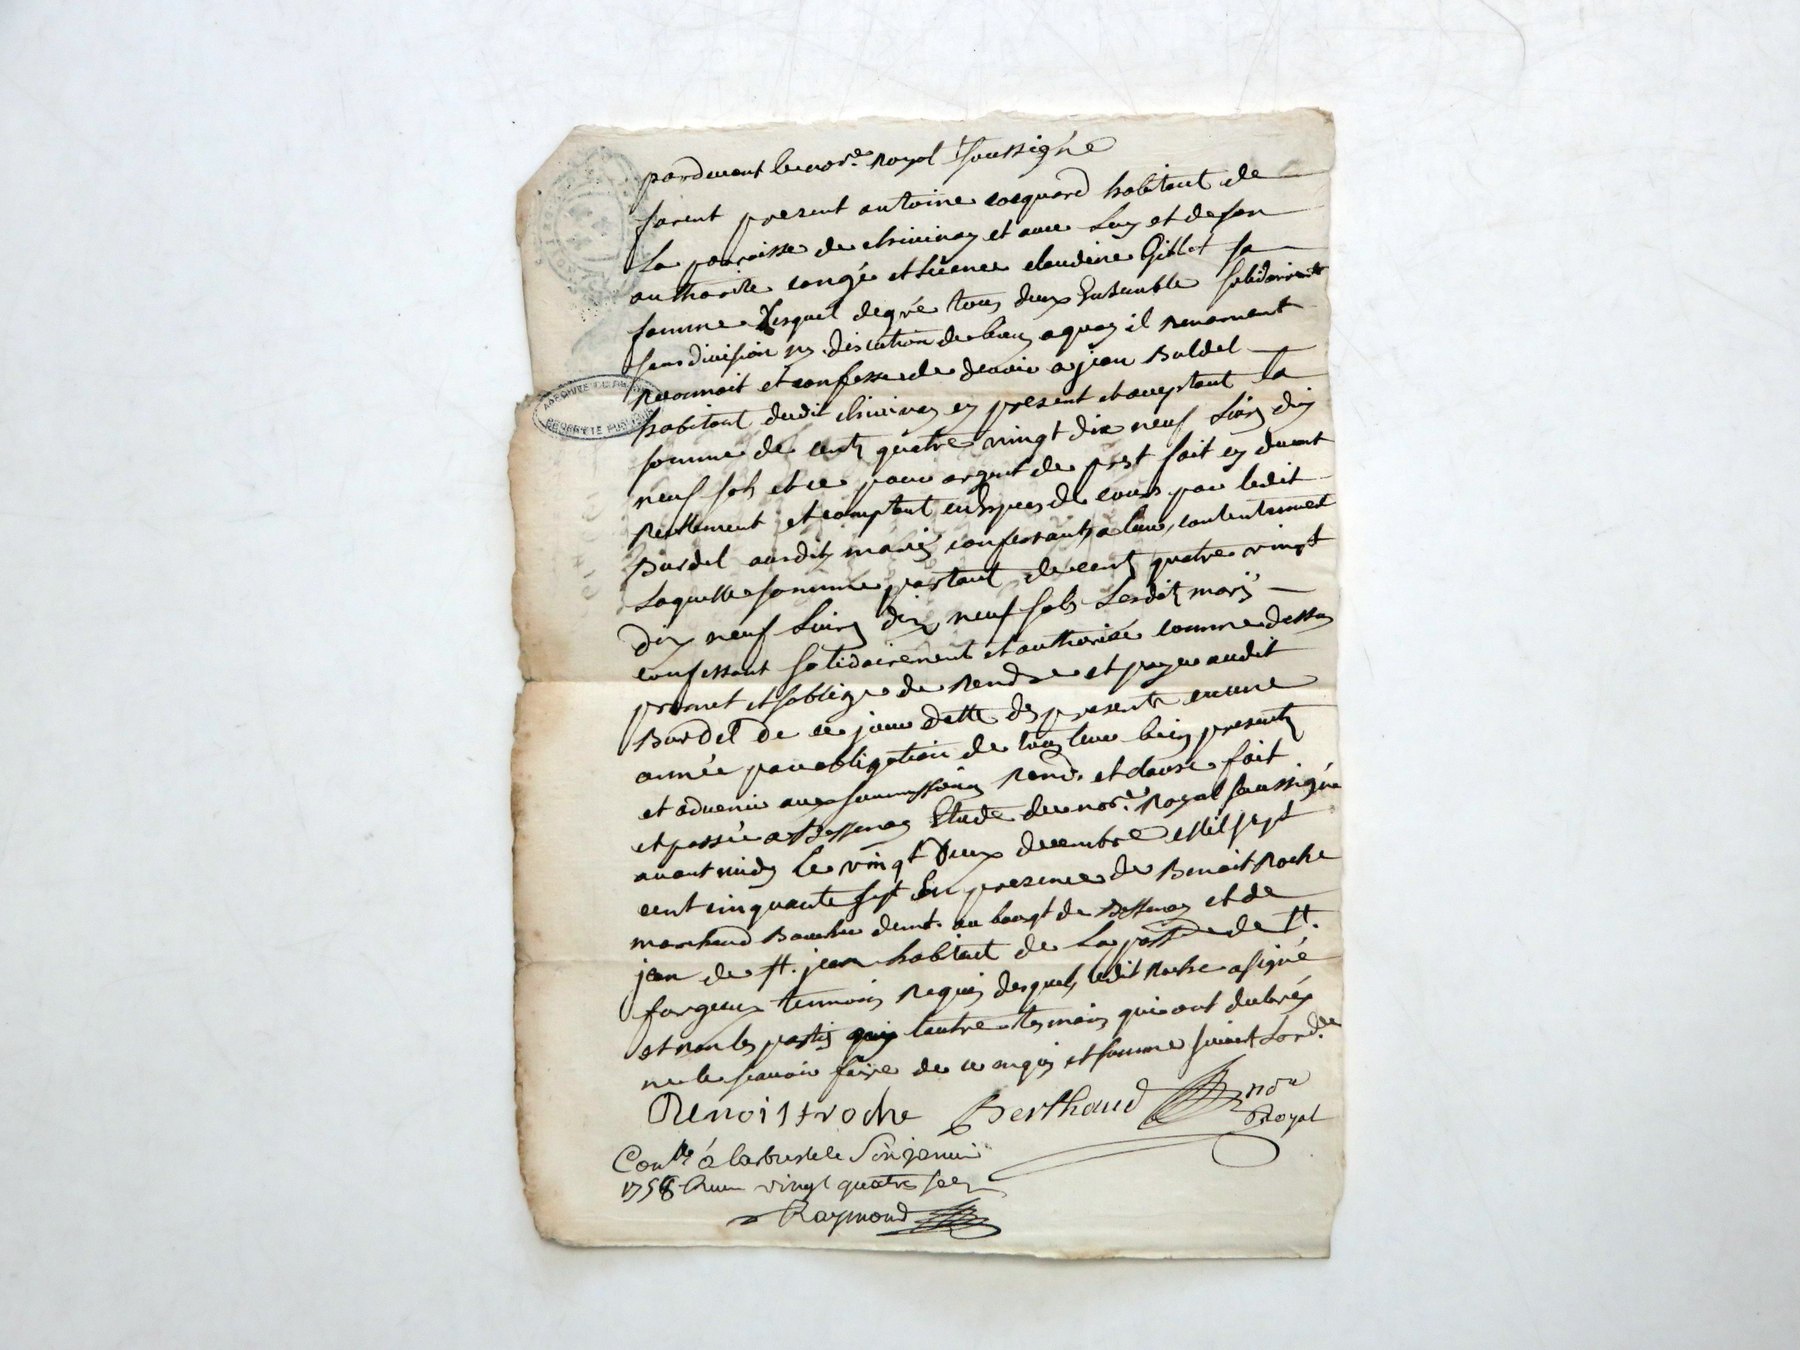 pardevant le no.re Royal soussigné
furent present antoine coquard habitant de
la parroisse de chivinay et avec luy et de son
authorite congé et licence claudine Gillet sa
famme lesquel de gré tous deux Ensemble solidairemt
sans division ny discution de biens a quoy il renoncent
reconnoit et confesse de devoir a jean Burdel
habitant dudit chivinay cy present et aceptant la
somme de cent quatre vingt dix neuf livres dix
neuf sols et ce pour argent de prest fait cy devant
reellement et comptant en Espèces de cours par ledit
Burdel ausdits mariés confessants a leur contentement
laquelle somme partant de cent quatre vingt
dix neuf livres dix neuf sols Lesdits mariés
confessant solidairement et authorisée comme dessus
promet et soblige de rendre et payer audit
Burdel de ce jour datte des presente en une
année par obligation de tous leur biens presents
et advenir aux soummissions renon. et clause fait
et passée a Bessenay Etude du no.re Royal soussigné
avant midy le vingt Deux decembre Mil sept
cent cinquante sept En presence de Benoit Roche
marchand Boucher demt. au bourgt de Bessenay et de
jean de St. jean habitant de la parsse de St.
forgeux temmoins requis desquels ledit Roche a signé
et non les partis ny lautre tesmoins qui ont declarés
ne le scavoir faire de ce enquis et somme suivant Lord.ce
Benoist roche Berthaud no.re
Royal
Con.lé á larbresle le 5 janvier
1758 Reçu vingt quatre sols
Raymond
PROPRIETE PUBLIQUE